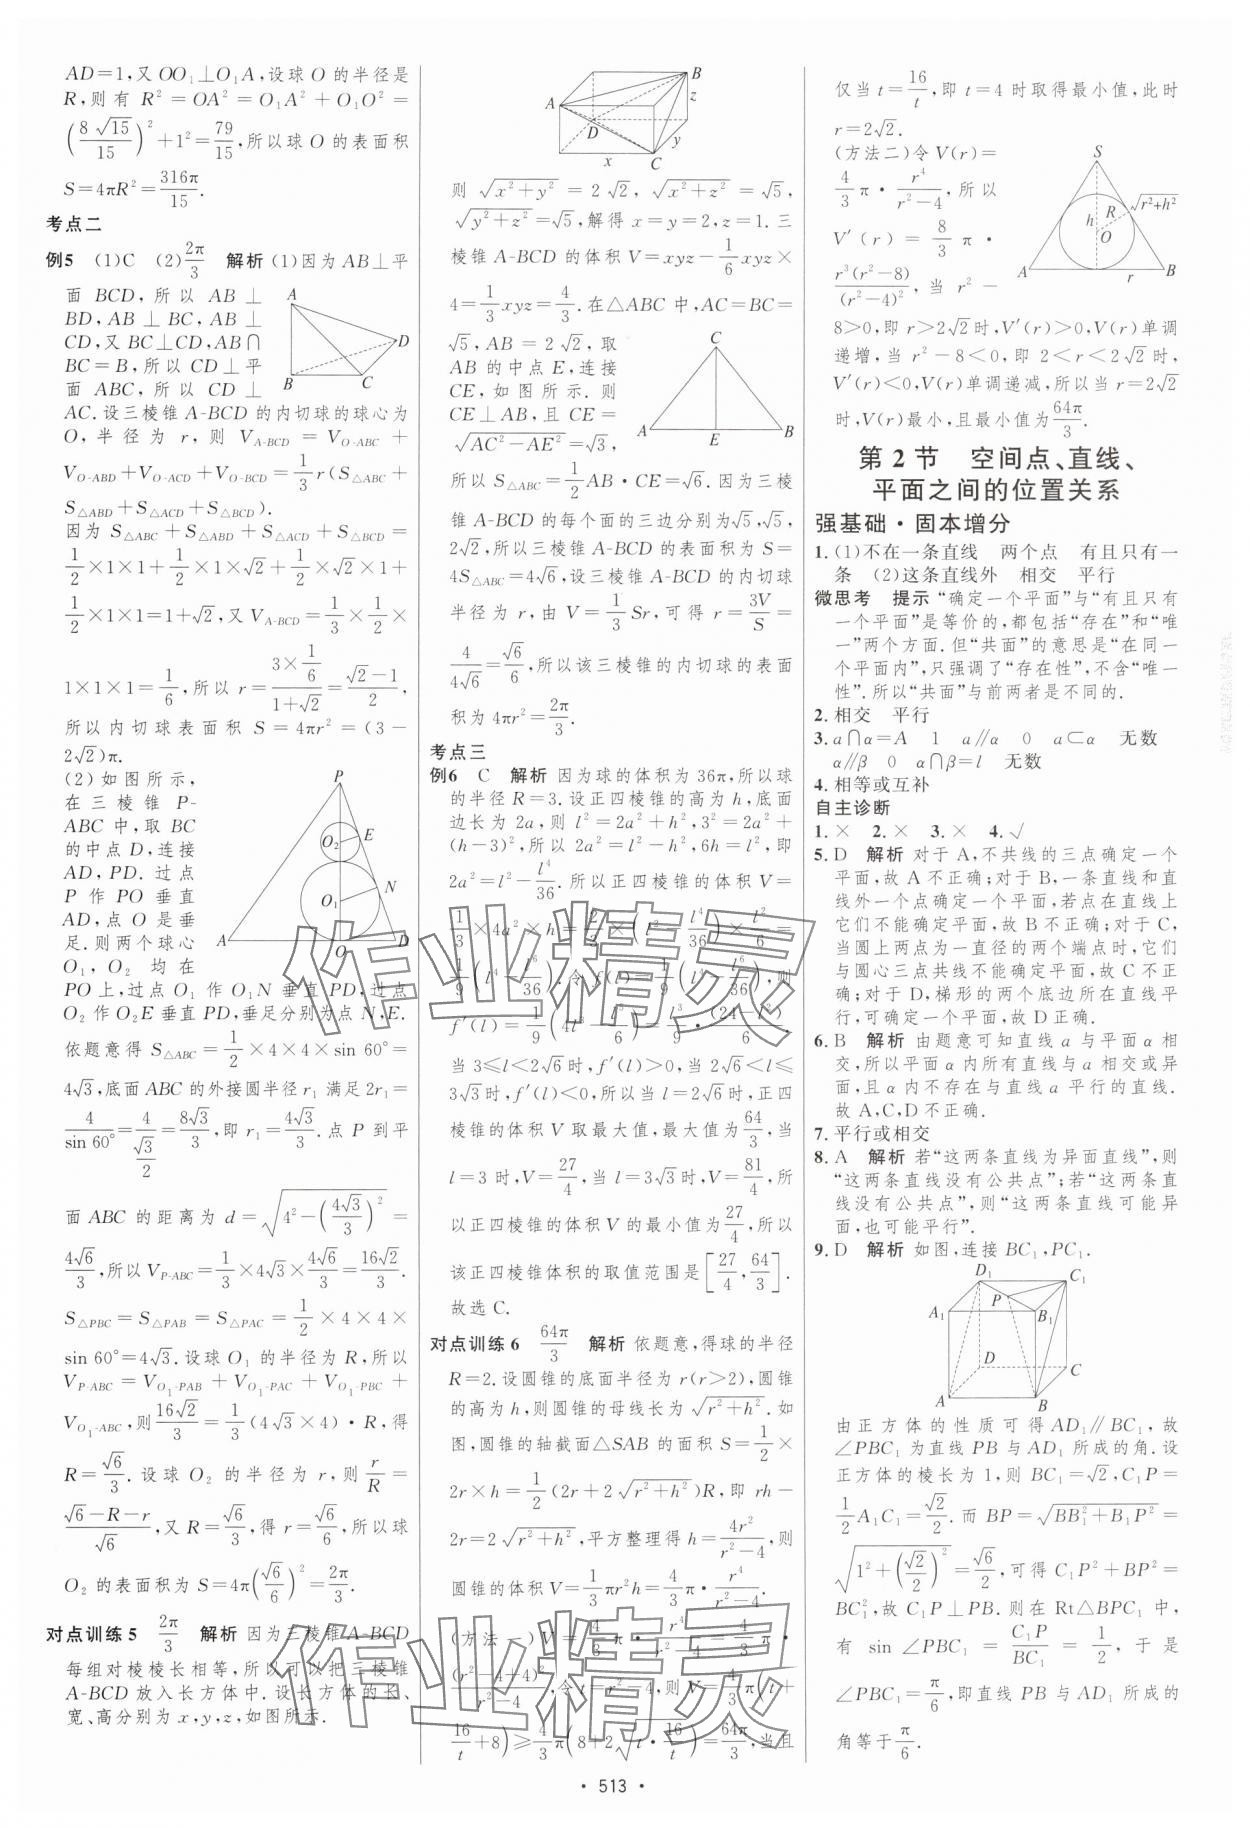 AD=1,又 OO₁⊥O₁A,设球 O 的半径是
R,则有 R²=OA²=O₁A²+O₁O²=
(8√15/15)²+1²=79/15,所以球 O 的表面积
S=4πR²=316π/15.
考点二
例5 (1)C (2)2π/3 解析 (1)因为 AB⊥平
面 BCD,所以 AB⊥
BD,AB⊥BC,AB⊥
CD,又 BC⊥CD,AB∩
BC=B,所以 CD⊥平
面 ABC,所以 CD⊥
A
D
B
C
AC.设三棱锥 A-BCD 的内切球的球心为
O,半径为 r,则 V_{A-BCD}=V_{O-ABC}+
V_{O-ABD}+V_{O-ACD}+V_{O-BCD}=1/3 r(S△ABC+
S△ABD+S△ACD+S△BCD).
因为 S△ABC+S△ABD+S△ACD+S△BCD=
1/2×1×1+1/2×1×√2+1/2×√2×1+
1/2×1×1=1+√2,又 V_{A-BCD}=1/3×1/2×
1×1×1=1/6,所以 r=(3×1/6)/(1+√2)=(√2-1)/2,
所以内切球表面积 S=4πr²=(3-
2√2)π.
(2)如图所示,
在三棱锥 P-
ABC 中,取 BC
的中点 D,连接
AD,PD.过点
P 作 PO 垂直
AD,点 O 是垂
足.则两个球心
O₁,O₂ 均在
P
O₂
E
O₁
N
A
O
D
PO 上,过点 O₁ 作 O₁N 垂直 PD,过点
O₂ 作 O₂E 垂直 PD,垂足分别为点 N,E.
依题意得 S△ABC=1/2×4×4×sin 60°=
4√3,底面 ABC 的外接圆半径 r₁ 满足 2r₁=
4/sin 60°=4/(√3/2)=8√3/3,即 r₁=4√3/3.点 P 到平
面 ABC 的距离为 d=√(4²-(4√3/3)²)=
4√6/3,所以 V_{P-ABC}=1/3×4√3×4√6/3=16√2/3.
S△PBC=S△PAB=S△PAC=1/2×4×4×
sin 60°=4√3.设球 O₁ 的半径为 R,所以
V_{P-ABC}=V_{O₁-PAB}+V_{O₁-PAC}+V_{O₁-PBC}+
V_{O₁-ABC},则16√2/3=1/3(4√3×4)·R,得
R=√6/3.设球 O₂ 的半径为 r,则 r/R=
(√6-R-r)/√6,又 R=√6/3,得 r=√6/6,所以球
O₂ 的表面积为 S=4π(√6/6)²=2π/3.
对点训练5 2π/3 解析 因为三棱锥 A-BCD
每组对棱棱长相等,所以可以把三棱锥
A-BCD 放入长方体中.设长方体的长、
宽、高分别为 x,y,z,如图所示.
A
B
D
C
x
y
z
则 √(x²+y²)=2√2,√(x²+z²)=√5,
√(y²+z²)=√5,解得 x=y=2,z=1.三
棱锥 A-BCD 的体积 V=xyz-1/6 xyz×
4=1/3 xyz=4/3.在△ABC 中,AC=BC=
√5,AB=2√2,取
AB 的中点 E,连接
CE,如图所示.则
CE⊥AB,且 CE=
√(AC²-AE²)=√3,
C
A
E
B
所以 S△ABC=1/2 AB·CE=√6.因为三棱
锥 A-BCD 的每个面的三边分别为√5,√5,
2√2,所以三棱锥 A-BCD 的表面积为 S=
4S△ABC=4√6,设三棱锥 A-BCD 的内切球
半径为 r,由 V=1/3 Sr,可得 r=3V/S=
4/(4√6)=√6/6,所以该三棱锥的内切球的表面
积为 4πr²=2π/3.
考点三
例6 C 解析 因为球的体积为 36π,所以球
的半径 R=3.设正四棱锥的高为 h,底面
边长为 2a,则 l²=2a²+h²,3²=2a²+
(h-3)²,所以 2a²=l²-h²,6h=l²,即
2a²=l²-l⁴/36.所以正四棱锥的体积 V=
1/3×4a²×h=2/3×(l²-l⁴/36)×l²/6=
1/9(l⁴-l⁶/36).令 f(l)=1/9(l⁴-l⁶/36),则
f′(l)=1/9(4l³-l⁵/6)=1/9·l³(24-l²)/6.
当 3≤l<2√6时,f′(l)>0,当 2√6<l≤
3√3时,f′(l)<0,所以当 l=2√6时,正四
棱锥的体积 V 取最大值,最大值为64/3,当
l=3 时,V=27/4,当 l=3√3时,V=81/4,所
以正四棱锥的体积 V 的最小值为27/4,所以
该正四棱锥体积的取值范围是[27/4,64/3].
故选 C.
对点训练6 64π/3 解析 依题意,得球的半径
R=2.设圆锥的底面半径为 r(r>2),圆锥
的高为 h,则圆锥的母线长为 √(r²+h²).如
图,圆锥的轴截面△SAB 的面积 S=1/2×
2r×h=1/2(2r+2√(r²+h²))R,即 rh-
2r=2√(r²+h²),平方整理得 h=4r²/(r²-4),则
圆锥的体积 V=1/3 πr²h=4/3 π·r⁴/(r²-4).
(方法一)V=4/3 π·r⁴/(r²-4)=4/3 π·
(r²-4+4)²/(r²-4),令 t=r²-4,则 V=4/3 π(t+
16/t+8)≥4/3 π(8+2√(t·16/t))=64π/3,当且
仅当 t=16/t,即 t=4 时取得最小值,此时
r=2√2.
(方法二)令 V(r)=
4/3 π·r⁴/(r²-4),所以
V′(r)=8/3 π·
r³(r²-8)/(r²-4)²,当 r²-
S
R
√r²+h²
h
O
A
r
B
8>0,即 r>2√2时,V′(r)>0,V(r)单调
递增,当 r²-8<0,即 2<r<2√2时,
V′(r)<0,V(r)单调递减,所以当 r=2√2
时,V(r)最小,且最小值为64π/3.
第2节 空间点、直线、
平面之间的位置关系
强基础·固本增分
1.(1)不在一条直线 两个点 有且只有一
条 (2)这条直线外 相交 平行
微思考 提示 “确定一个平面”与“有且只有
一个平面”是等价的,都包括“存在”和“唯
一”两个方面.但“共面”的意思是“在同一
个平面内”,只强调了“存在性”,不含“唯一
性”.所以“共面”与前两者是不同的.
2.相交 平行
3.a∩α=A 1 a∥α 0 a⊂α 无数
α∥β 0 α∩β=l 无数
4.相等或互补
自主诊断
1.× 2.× 3.× 4.√
5.D 解析 对于 A,不共线的三点确定一个
平面,故 A 不正确;对于 B,一条直线和直
线外一个点确定一个平面,若点在直线上
它们不能确定平面,故 B 不正确;对于 C,
当圆上两点为一直径的两个端点时,它们
与圆心三点共线不能确定平面,故 C 不正
确;对于 D,梯形的两个底边所在直线平
行,可确定一个平面,故 D 正确.
6.B 解析 由题意可知直线 a 与平面 α 相
交,所以平面 α 内所有直线与 a 相交或异
面,且 α 内不存在与直线 a 平行的直线.
故 A,C,D 不正确.
7.平行或相交
8.A 解析 若“这两条直线为异面直线”,则
“这两条直线没有公共点”;若“这两条直
线没有公共点”,则“这两条直线可能异
面,也可能平行”.
9.D 解析 如图,连接 BC₁,PC₁.
D₁
C₁
P
A₁
B₁
D
C
A
B
由正方体的性质可得 AD₁∥BC₁,故
∠PBC₁ 为直线 PB 与 AD₁ 所成的角.设
正方体的棱长为 1,则 BC₁=√2,C₁P=
1/2 A₁C₁=√2/2.而 BP=√(BB₁²+B₁P²)=
√(1²+(√2/2)²)=√6/2,可得 C₁P²+BP²=
BC₁²,故 C₁P⊥PB.则在 Rt△BPC₁ 中,
有 sin∠PBC₁=C₁P/BC₁=1/2,于是
∠PBC₁=π/6,即直线 PB 与 AD₁ 所成的
角等于π/6.
· 513 ·
作业精灵
作业精灵